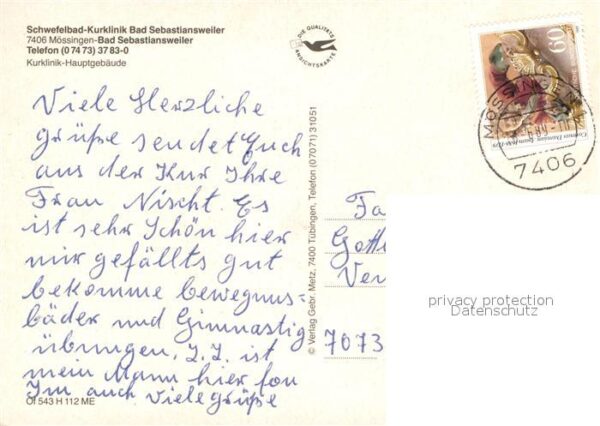 Schwefelbad-Kurklinik Bad Sebastiansweiler
7406 Mössingen-Bad Sebastiansweiler
Telefon (0 74 73) 37 83-0
Kurklinik-Hauptgebäude
DIE QUALITÄTS
ANSICHTSKARTE
Viele Herzliche
grüße sendet Euch
aus der Kur Ihre
Frau Nischt. Es
ist sehr Schön hier
mir gefällts gut
bekomme bewegnus-
bäder und Gimnastig
übungen, Z.Z. ist
mein Mann hier fon
Im auch viele grüße
Öl 543 H 112 ME
© Verlag Gebr. Metz, 7400 Tübingen, Telefon (07071) 31051
60
MÖSSINGEN
7406
Fa
Gotte
Ver
7073
privacy protection
Datenschutz